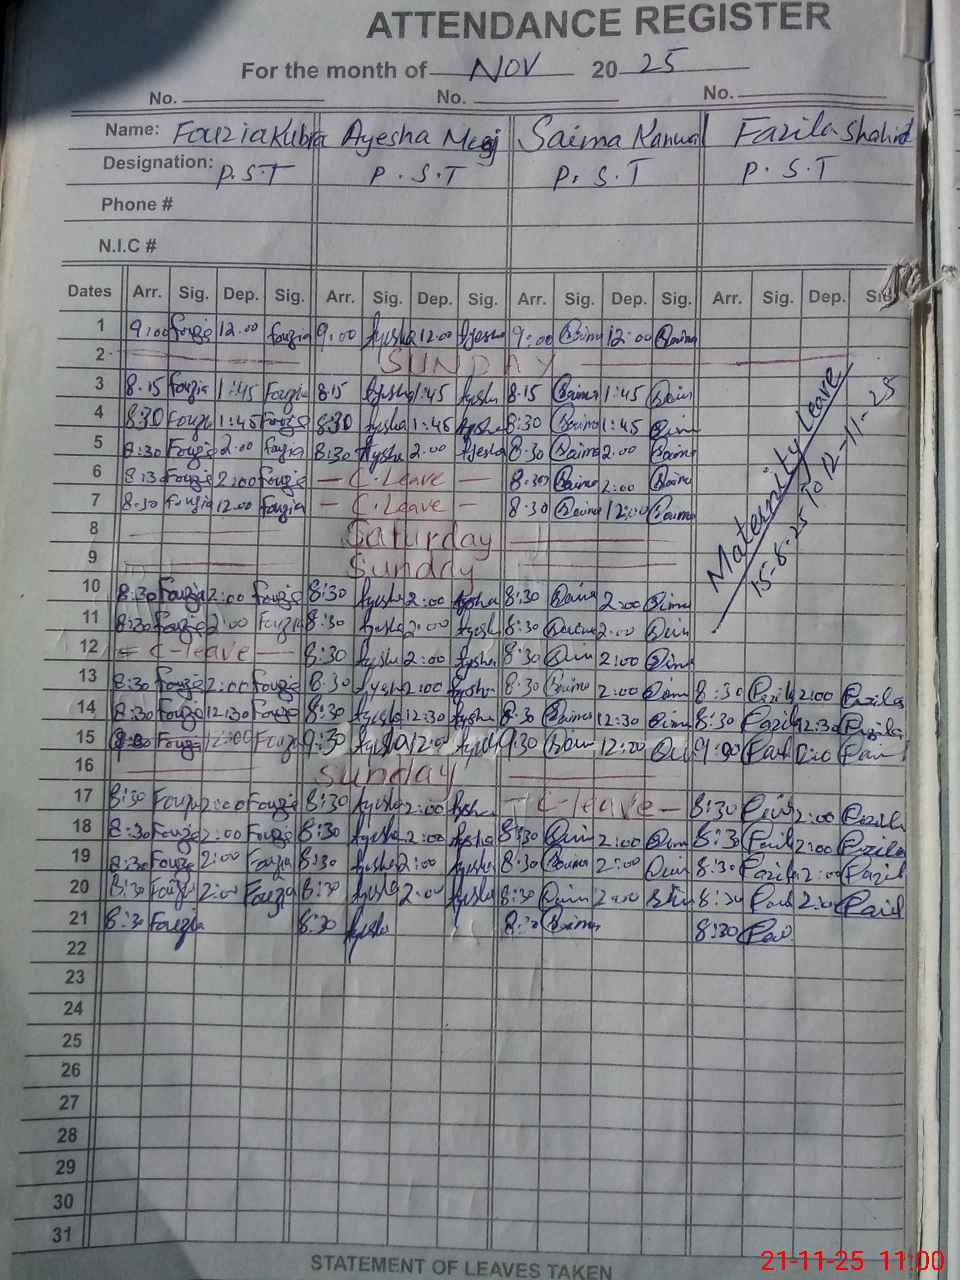 ATTENDANCE REGISTER
For the month of NOV 20 25
No. No. No.
Name: Fouzia Kubra Ayesha Saima Kanwal Fazila Shahid
Designation: P.S.T P.S.T P.S.T P.S.T
Phone #
N.I.C #
Dates Arr. Sig. Dep. Sig. Arr. Sig. Dep. Sig. Arr. Sig. Dep. Sig. Arr. Sig. Dep. Sig
1 9:00 Fouzia 12.00 Fouzia 9:00 Ayesha 12:00 Ayesha 9:00 Saima 12:00 Saima
2 SUNDAY
3 8.15 Fouzia 1:45 Fouzia 8:15 Ayesha 1:45 Ayesha 8.15 Saima 1:45 Saim
4 8:30 Fouzia 1:45 Fouzia 8:30 Ayesha 1:45 Ayesha 8:30 Saima 1:45 Saim
5 8:30 Fouzia 2:00 Fouzia 8:30 Ayesha 2:00 Ayesha 8:30 Saima 2:00 Saima
6 8:30 Fouzia 2:00 Fouzia - C.Leave - 8:30 Saima 2:00 Saima
7 8:30 Fouzia 12:00 Fouzia - C.Leave - 8:30 Saima 12:00 Saima
Maternity Leave
15-8-25 To 12-11-25
8 Saturday
9 Sunday
10 8:30 Fouzia 2:00 Fouzia 8:30 Ayesha 2:00 Ayesha 8:30 Saima 2:00 Saim
11 8:30 Fouzia 2:00 Fouzia 8:30 Ayesha 2:00 Ayesha 8:30 Saima 2:00 Saim
12 - C-leave - 8:30 Ayesha 2:00 Ayesha 8:30 Saim 2:00 Saim
13 8:30 Fouzia 2:00 Fouzia 8:30 Ayesha 2:00 Ayesha 8:30 Saima 2:00 Saim 8:30 Fazila 2:00 Fazila
14 8:30 Fouzia 12:30 Fouzia 8:30 Ayesha 12:30 Ayesha 8:30 Saima 12:30 Saim 8:30 Fazila 12:30 Fazila
15 Fouzia 12:00 Fouzia 9:30 Ayesha 12:00 Ayesha 9:30 Saim 12:00 9:00
16 Sunday
17 8:30 Fouzia 2:00 Fouzia 8:30 Ayesha 2:00 Ayesha - C-leave - 8:30 2:00 Fazila
18 8:30 Fouzia 2:00 Fouzia 8:30 Ayesha 2:00 Ayesha 8:30 Saim 2:00 Saim 8:30 Fazil 2:00 Fazila
19 8:30 Fouzia 2:00 Fouzia 8:30 Ayesha 2:00 Ayesha 8:30 Saima 2:00 Saim 8:30 Fazila 2:00 Fazil
20 8:30 Fouzia 2:00 Fouzia 8:30 Ayesha 2:00 Ayesha 8:30 Saim 2:00 8:30 2:00
21 8:30 Fouzia 8:30 Ayesha 8:30 Saima 8:30
22
23
24
25
26
27
28
29
30
31
STATEMENT OF LEAVES TAKEN
21-11-25 11:00